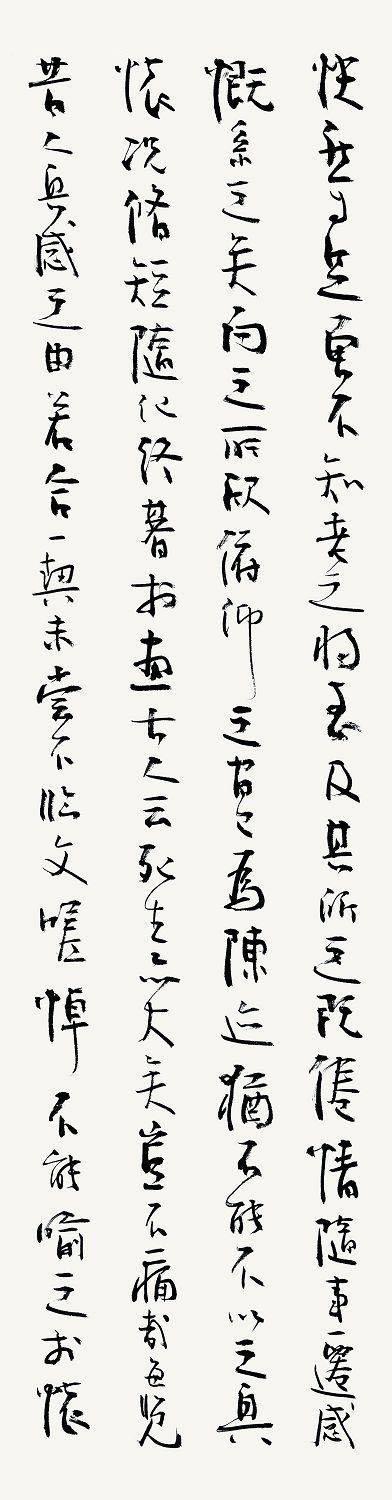 快然自足曾不知老之將至及其所之既倦情隨事遷感
慨系之矣向之所欣俯仰之間以為陳迹猶不能不以之興
懷況脩短隨化終朞於盡古人云死生亦大矣豈不痛哉每覽
昔人興感之由若合一契未嘗不臨文嗟悼不能喻之於懷